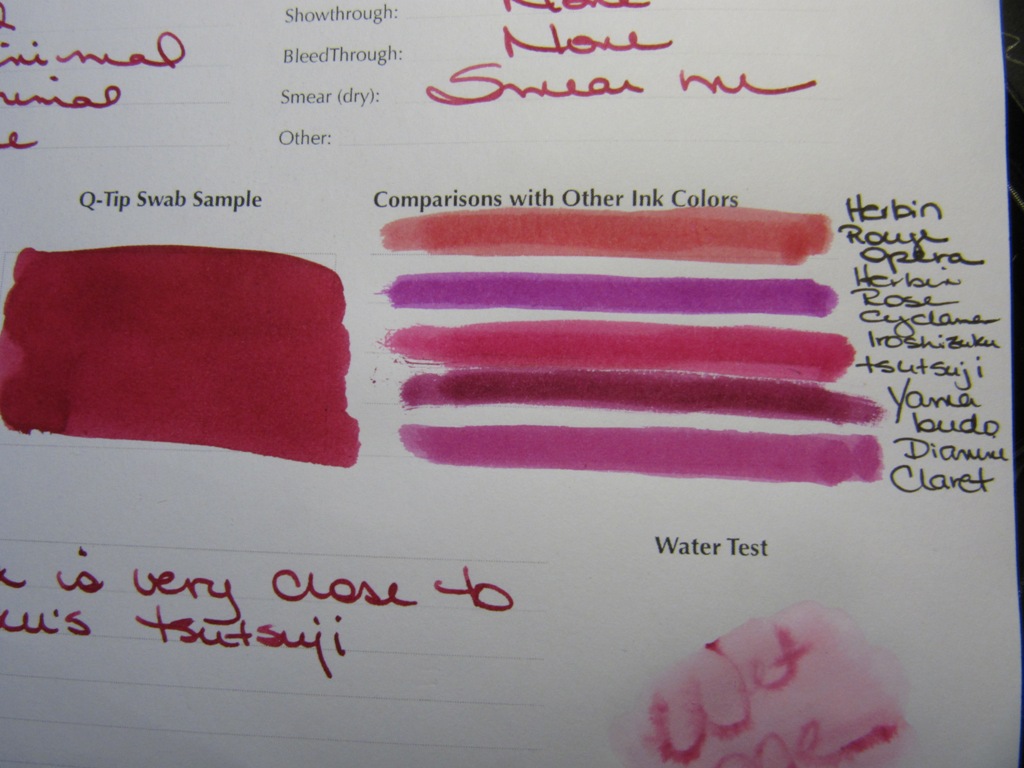 Showthrough: None
inimal BleedThrough: None
nimal Smear (dry): Smear me
Other:
Q-Tip Swab Sample
Comparisons with Other Ink Colors
Herbin
Rouge
Opera
Herbin
Rose
Cyclamen
Iroshizuku
tsutsuji
Yama
budo
Diamine
Claret
is very close to
tsutsuji
Water Test
Wet